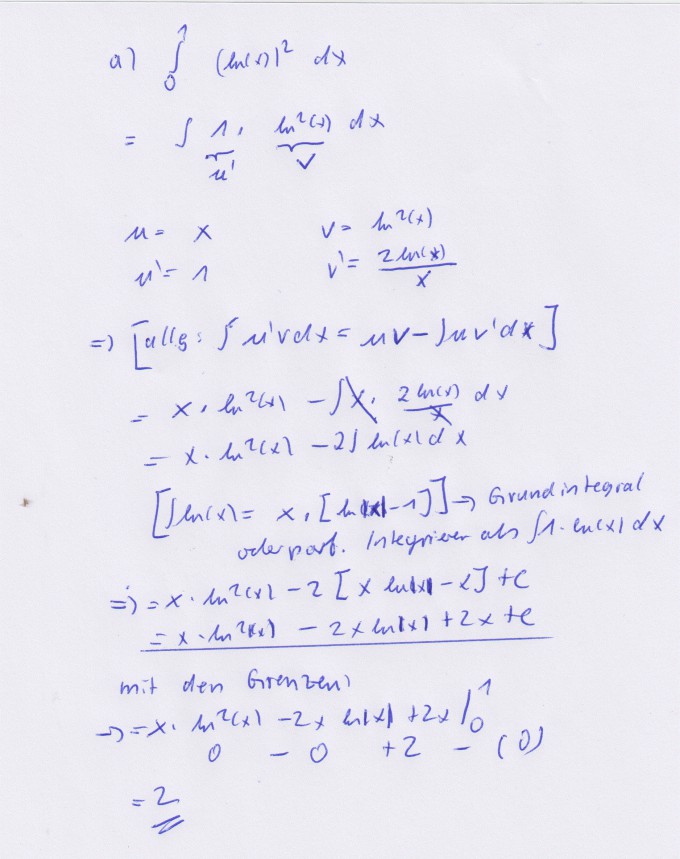 a) ∫₀¹ (ln(x))² dx
= ∫ 1 · ln²(x) dx
u' v
u = x v = ln²(x)
u' = 1 v' = 2 ln(x) / x
=> [allg: ∫ u'v dx = uv - ∫ u v' dx]
= x · ln²(x) - ∫ x · 2 ln(x) / x dx
= x · ln²(x) - 2 ∫ ln(x) d x
[∫ ln(x) = x · [ln|x| - 1]] -> Grundintegral
oder part. Integrieren als ∫ 1 · ln(x) dx
=> = x · ln²(x) - 2 [x ln|x| - x] + C
= x · ln²(x) - 2x ln|x| + 2x + C
mit den Grenzen:
-> = x · ln²(x) - 2x ln|x| + 2x |₀¹
0 - 0 + 2 - (0)
= 2